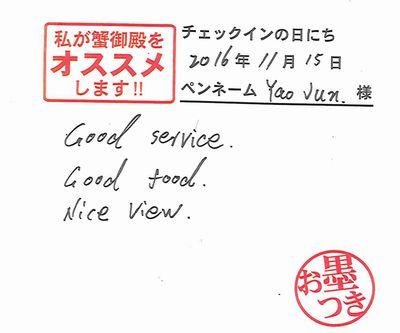 私が蟹御殿を
オススメ
します!!
チェックインの日にち
2016年11月15日
ペンネーム Yao Jun. 様
Good service.
Good food.
Nice View.
お墨つき